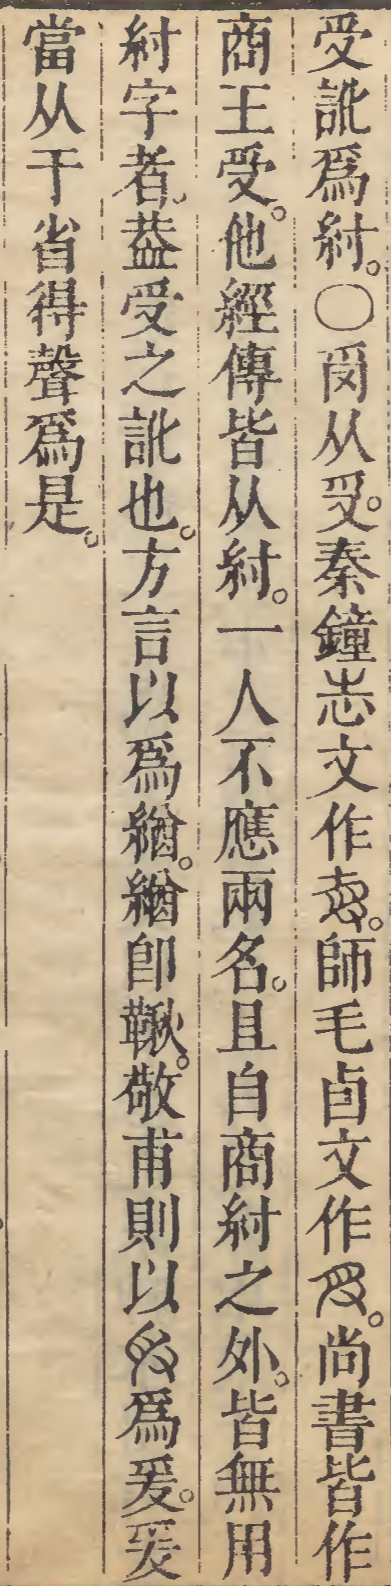 受訛爲紂。〇受从爰。秦鐘志文作。師毛卣文作。尚書皆作
商王受。他經傳皆从紂。一人不應兩名。且自商紂之外。皆無用
紂字者。葢受之訛也。方言以爲緧。緧卽鞦。敬甫則以爲爰。爰
當从干省得聲爲是。